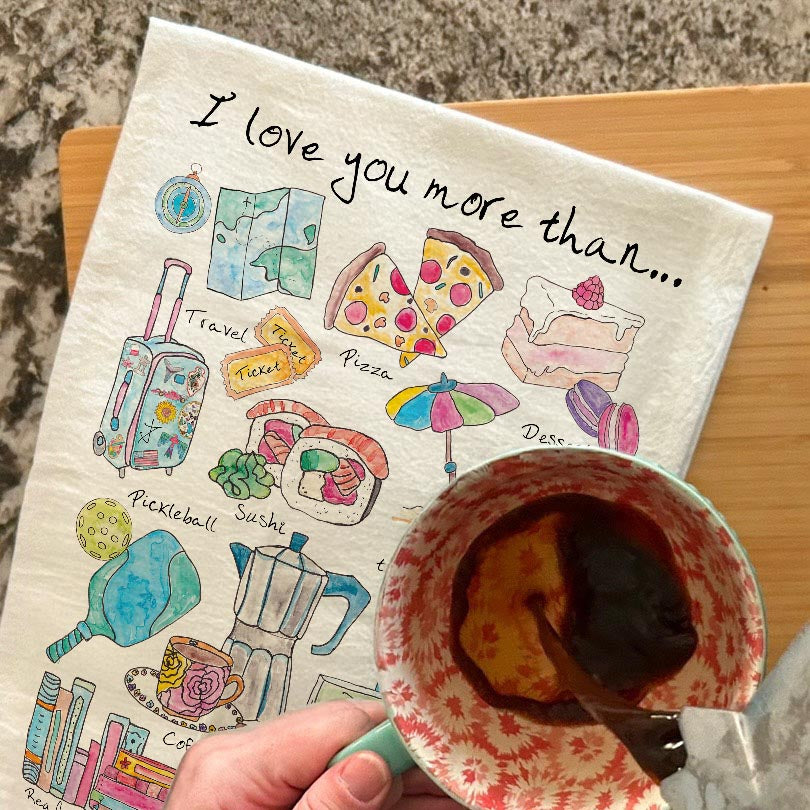 I love you more than...
Travel
Ticket
Ticket
Pizza
Pickleball
Sushi